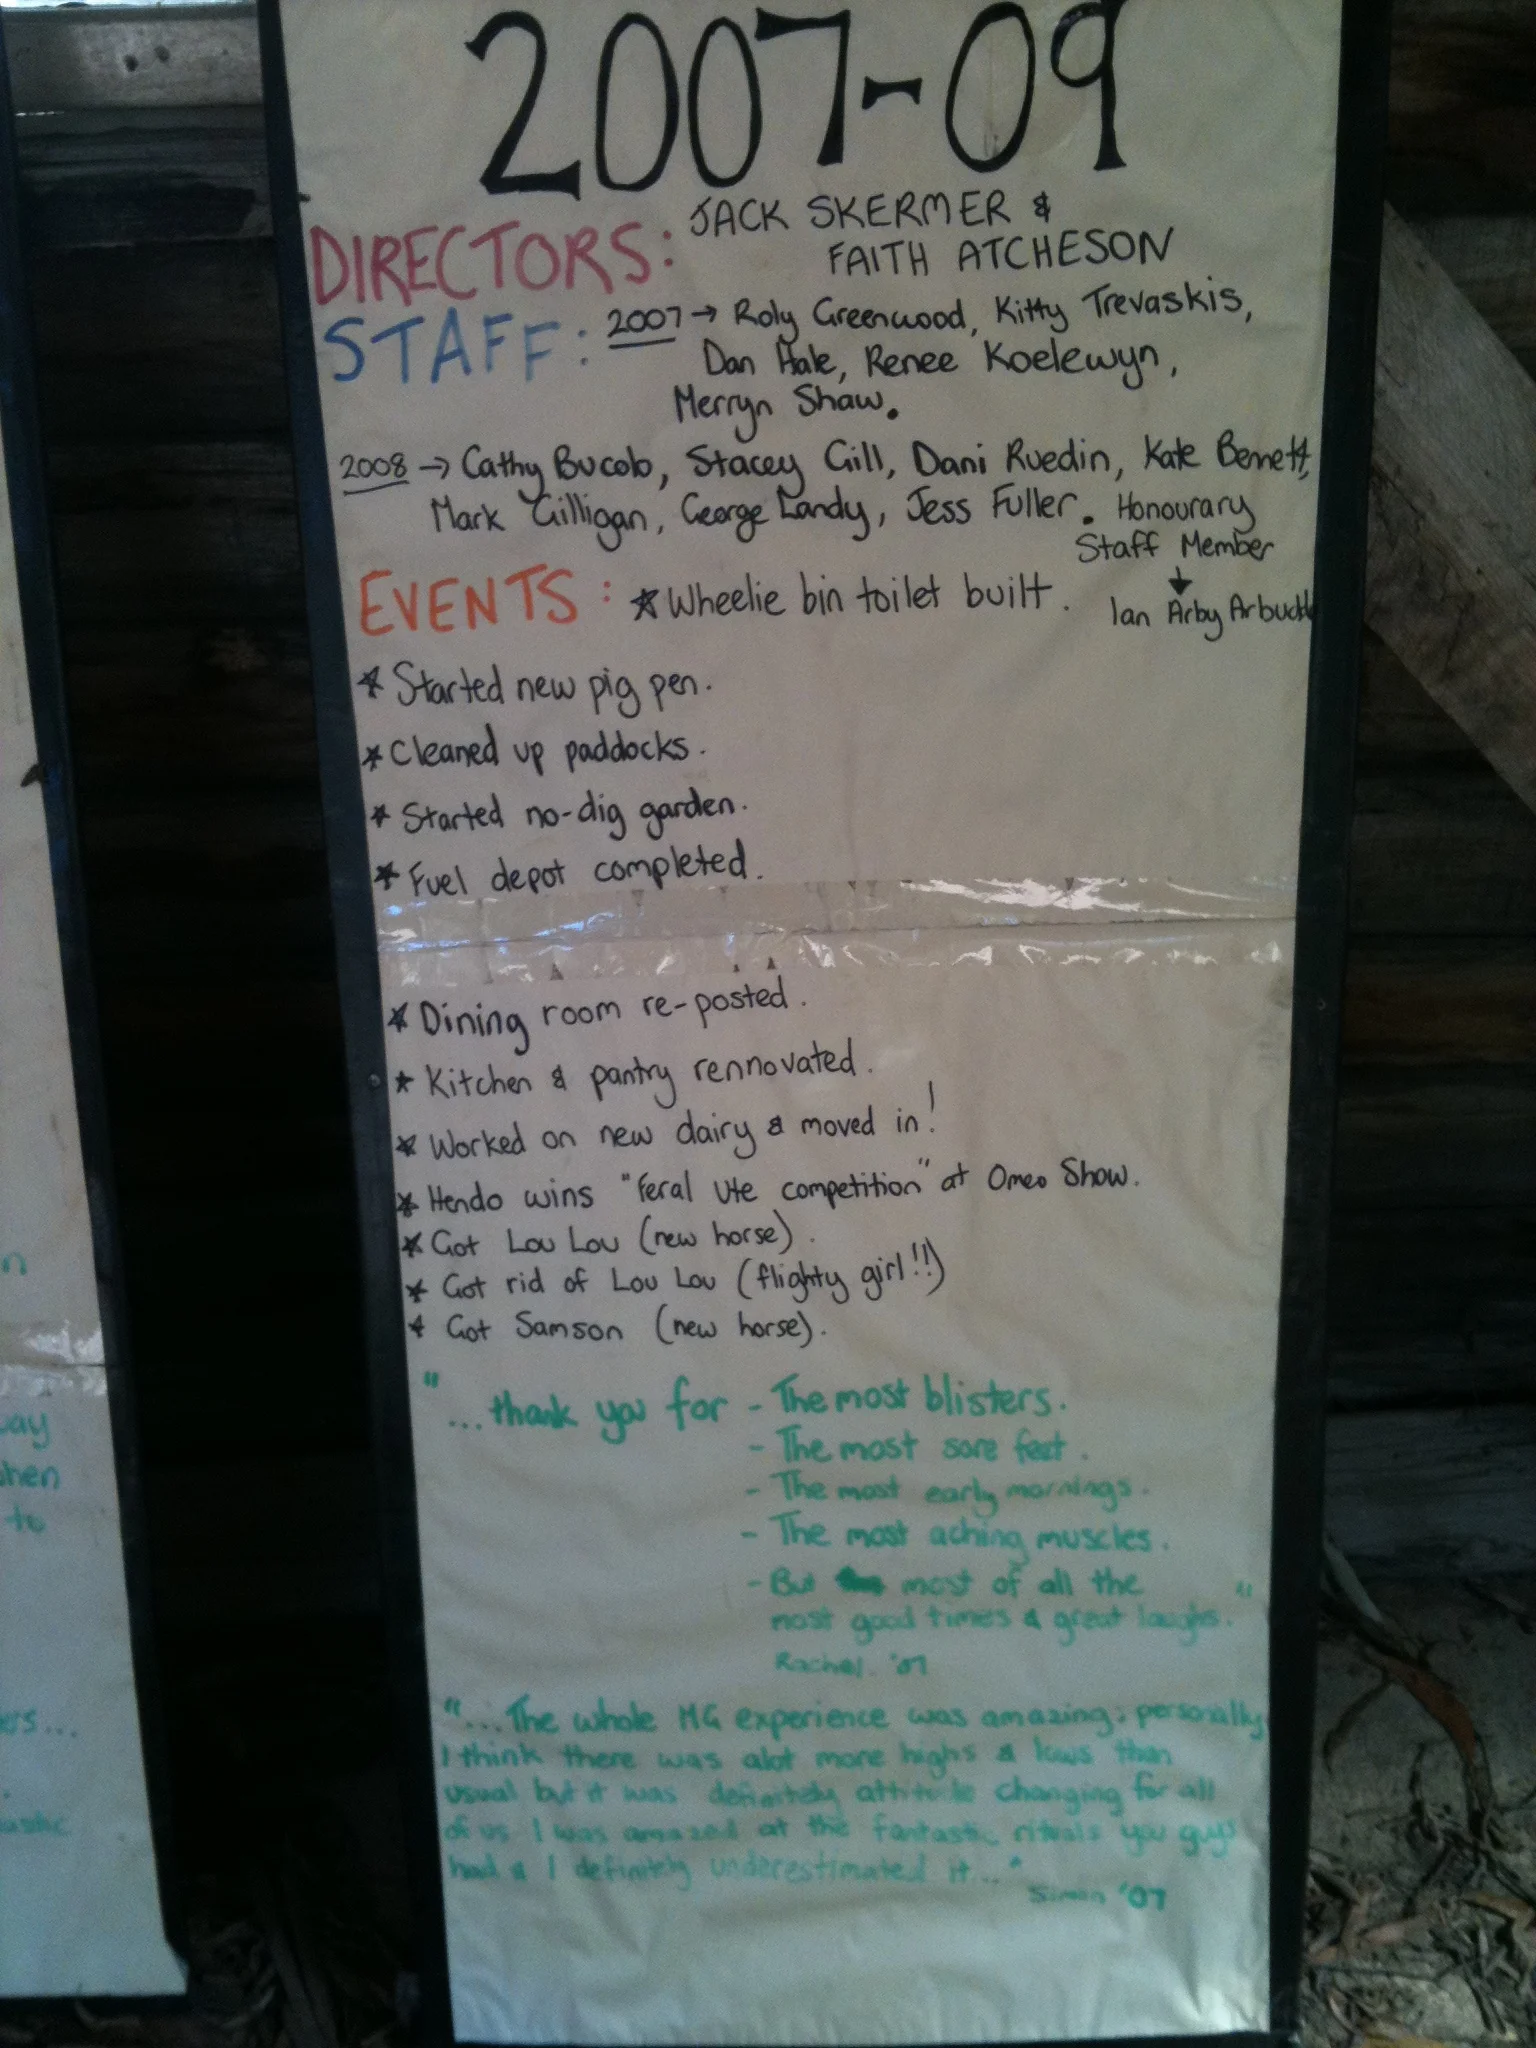 2007-09
DIRECTORS: JACK SKERMER &
FAITH ATCHESON
STAFF: 2007 → Roly Greenwood, Kitty Trevaskis,
Dan Hale, Renee Koelewyn,
Merryn Shaw.
2008 → Cathy Bucolo, Stacey Gill, Dani Ruedin, Kate Bennett,
Mark Gilligan, George Landy, Jess Fuller. Honourary
Staff Member
↓
Ian Arby Arbuckle
EVENTS: * Wheelie bin toilet built.
* Started new pig pen.
* Cleaned up paddocks.
* Started no-dig garden.
* Fuel depot completed.
* Dining room re-posted.
* Kitchen & pantry rennovated.
* Worked on new dairy & moved in!
* Hendo wins "Feral Ute competition" at Omeo Show.
* Got Lou Lou (new horse).
* Got rid of Lou Lou (flighty girl!!)
* Got Samson (new horse).
"...thank you for - The most blisters.
- The most sore feet.
- The most early mornings.
- The most aching muscles.
- But most of all the
most good times & great laughs."
Rachel. '07
"...The whole MG experience was amazing, personally
I think there was alot more highs & lows than
usual but it was definitely attitude changing for all
of us I was amazed at the fantastic rituals you guys
had & I definitely underestimated it..."
Simon '07